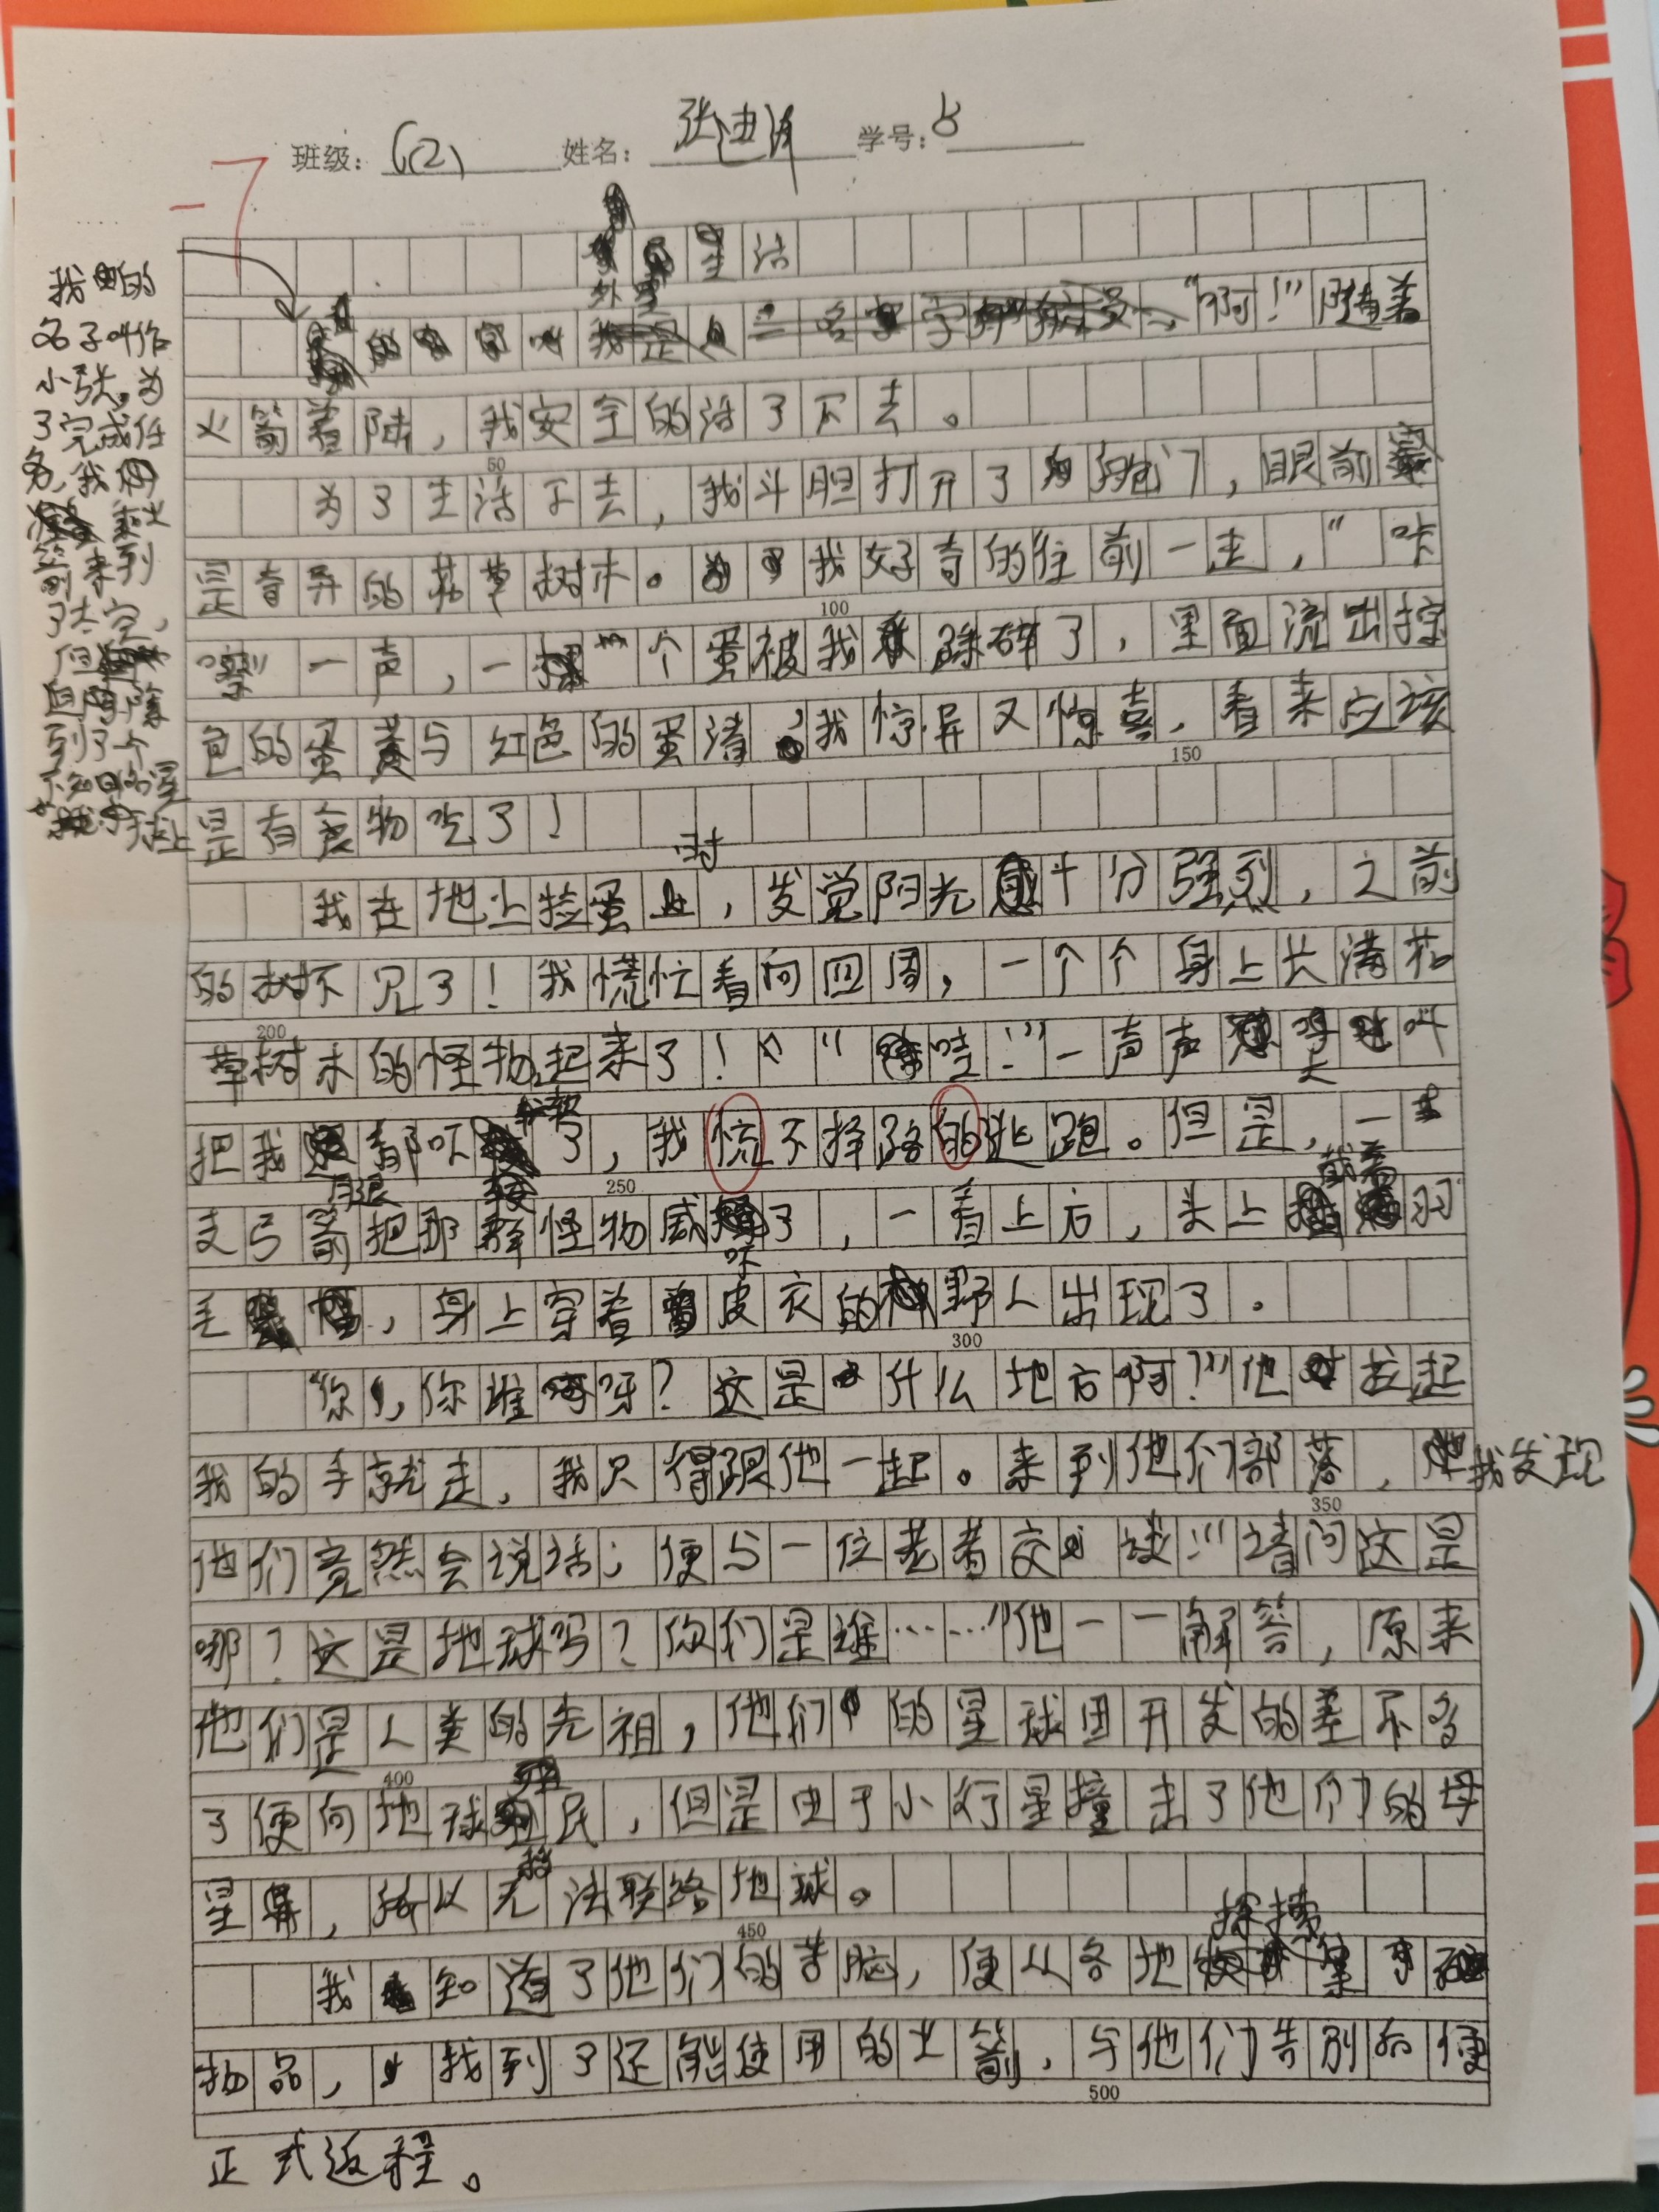 班级：6(2) 姓名：张迪 学号：8
-7
外星生活
我的
名子叫作
小张。为
了完成任
务，我
乘火
箭来到
了太空，
但
到了个
不知名的星
球上
“啊！”随着
火箭着陆，我安全的活了下去。
50
为了生活下去，我斗胆打开了舱门，眼前
是奇异的花草树木。我好奇的往前一走，“咔
100
嚓一声，一个蛋被我踩碎了，里面流出棕
色的蛋黄与红色的蛋清，我惊异又惊喜，看来应该
150
是有食物吃了！
我在地上捡蛋时，发觉阳光十分强烈，之前
的树不见了！我慌忙看向四周，一个个身上长满花
200
草树木的怪物起来了！“哇！”一声声叫
把我都吓了，我慌不择路的逃跑。但是，一
250
支弓箭把那群怪物威吓了，一看上方，头上戴着羽
毛，身上穿着皮衣的野人出现了。
300
“你，你谁呀？这是什么地方啊？”他拉起
我的手就走，我只得跟他一起。来到他们部落，我发现
350
他们竟然会说话；便与一位老者交谈：“请问这是
哪？这是地球吗？你们是谁……”他一一解答，原来
他们是人类的先祖，他们的星球因开发的差不多
400
了便向地球移民，但是由于小行星撞击了他们的母
星，所以无法联络地球。
450
我知道了他们的苦脑，便从各地探搜集
物品，找到了还能使用的火箭，与他们告别后便
500
正式返程。